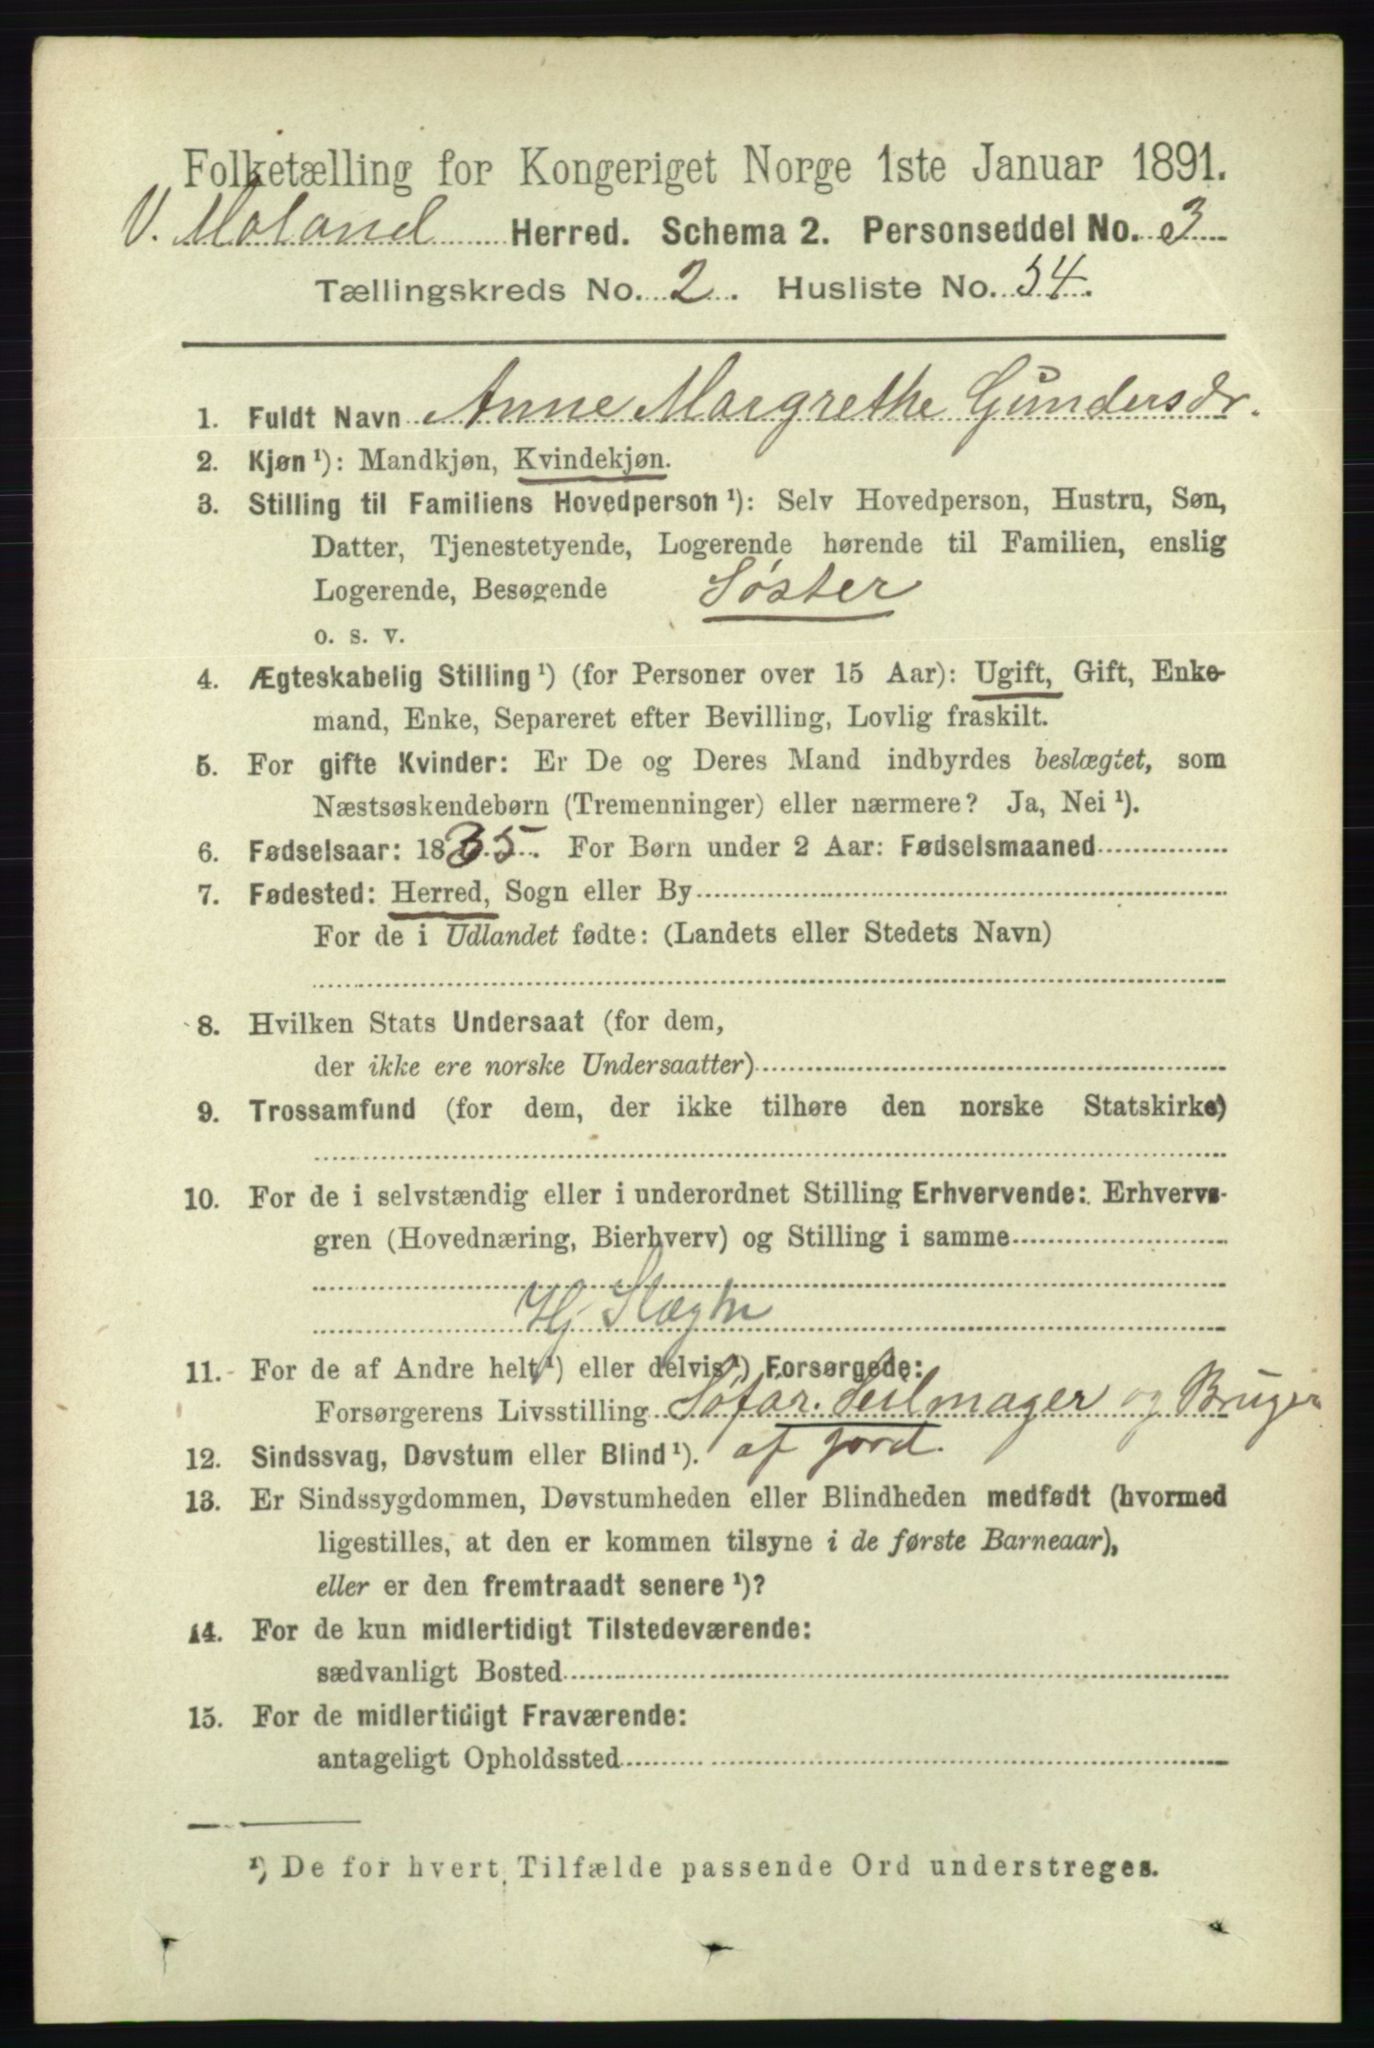 Folketælling for Kongeriget Norge 1ste Januar 1891.
V. Moland Herred. Schema 2. Personseddel No. 3
Tællingskreds No. 2. Husliste No. 54.
1. Fuldt Navn Anne Margrethe Gundersdr.
2. Kjøn ¹): Mandkjøn, Kvindekjøn.
3. Stilling til Familiens Hovedperson ¹): Selv Hovedperson, Hustru, Søn,
Datter, Tjenestetyende, Logerende hørende til Familien, enslig
Logerende, Besøgende Søster
o. s. v.
4. Ægteskabelig Stilling ¹) (for Personer over 15 Aar): Ugift, Gift, Enke-
mand, Enke, Separeret efter Bevilling, Lovlig fraskilt.
5. For gifte Kvinder: Er De og Deres Mand indbyrdes beslægtet, som
Næstsøskendebørn (Tremenninger) eller nærmere? Ja, Nei ¹).
6. Fødselsaar: 1835. For Børn under 2 Aar: Fødselsmaaned
7. Fødested: Herred, Sogn eller By
For de i Udlandet fødte: (Landets eller Stedets Navn)
8. Hvilken Stats Undersaat (for dem,
der ikke ere norske Undersaatter)
9. Trossamfund (for dem, der ikke tilhøre den norske Statskirke)
10. For de i selvstændig eller i underordnet Stilling Erhvervende: Erhvervs-
gren (Hovednæring, Bierhverv) og Stilling i samme
Hj Slægtn
11. For de af Andre helt ¹) eller delvis ¹) Forsørgede:
Forsørgerens Livsstilling Søfar. Seilmager og Bruger
12. Sindssvag, Døvstum eller Blind ¹). af jord.
13. Er Sindssygdommen, Døvstumheden eller Blindheden medfødt (hvormed
ligestilles, at den er kommen tilsyne i de første Barneaar),
eller er den fremtraadt senere ¹)?
14. For de kun midlertidigt Tilstedeværende:
sædvanligt Bosted
15. For de midlertidigt Fraværende:
antageligt Opholdssted
¹) De for hvert Tilfælde passende Ord understreges.